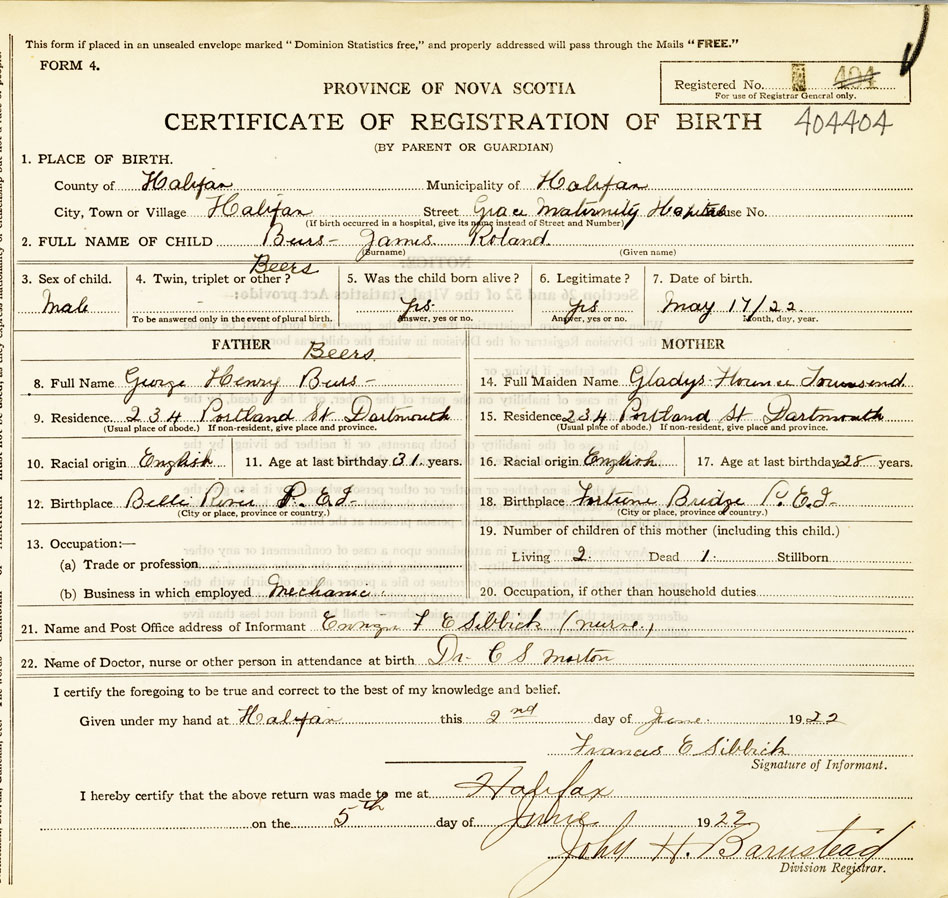 This form if placed in an unsealed envelope marked "Dominion Statistics free," and properly addressed will pass through the Mails "FREE."
FORM 4.
Registered No. 404
For use of Registrar General only.
PROVINCE OF NOVA SCOTIA
CERTIFICATE OF REGISTRATION OF BIRTH 404404
(BY PARENT OR GUARDIAN)
1. PLACE OF BIRTH.
County of Halifax Municipality of Halifax
City, Town or Village Halifax Street Grace Maternity Hospital House No.
(If birth occurred in a hospital, give its name instead of Street and Number)
2. FULL NAME OF CHILD Beers - James Roland
(Surname) (Given name)
Beers
3. Sex of child. 4. Twin, triplet or other? 5. Was the child born alive? 6. Legitimate? 7. Date of birth.
Male Yes Yes May 17/22
To be answered only in the event of plural birth. Answer, yes or no. Answer, yes or no. Month, day, year.
FATHER MOTHER
Beers
8. Full Name George Henry Beers - 14. Full Maiden Name Gladys Florence Townsend
9. Residence 234 Portland St Dartmouth 15. Residence 234 Portland St Dartmouth
(Usual place of abode.) If non-resident, give place and province. (Usual place of abode.) If non-resident, give place and province.
10. Racial origin English 11. Age at last birthday 31 years. 16. Racial origin English 17. Age at last birthday 28 years.
12. Birthplace Belle River P.E.I- 18. Birthplace Fortune Bridge P.E.I-
(City or place, province or country.) (City or place, province or country.)
19. Number of children of this mother (including this child.)
13. Occupation:—
Living 2. Dead 1. Stillborn
(a) Trade or profession
(b) Business in which employed Mechanic. 20. Occupation, if other than household duties
21. Name and Post Office address of Informant Ensign F E Sibbick (nurse,
22. Name of Doctor, nurse or other person in attendance at birth Dr- C S Morton
I certify the foregoing to be true and correct to the best of my knowledge and belief.
Given under my hand at Halifax this 2nd day of June. 1922
Francis E Sibbick
Signature of Informant.
I hereby certify that the above return was made to me at Halifax
on the 5th day of June 1922
John H. Barnstead
Division Registrar.